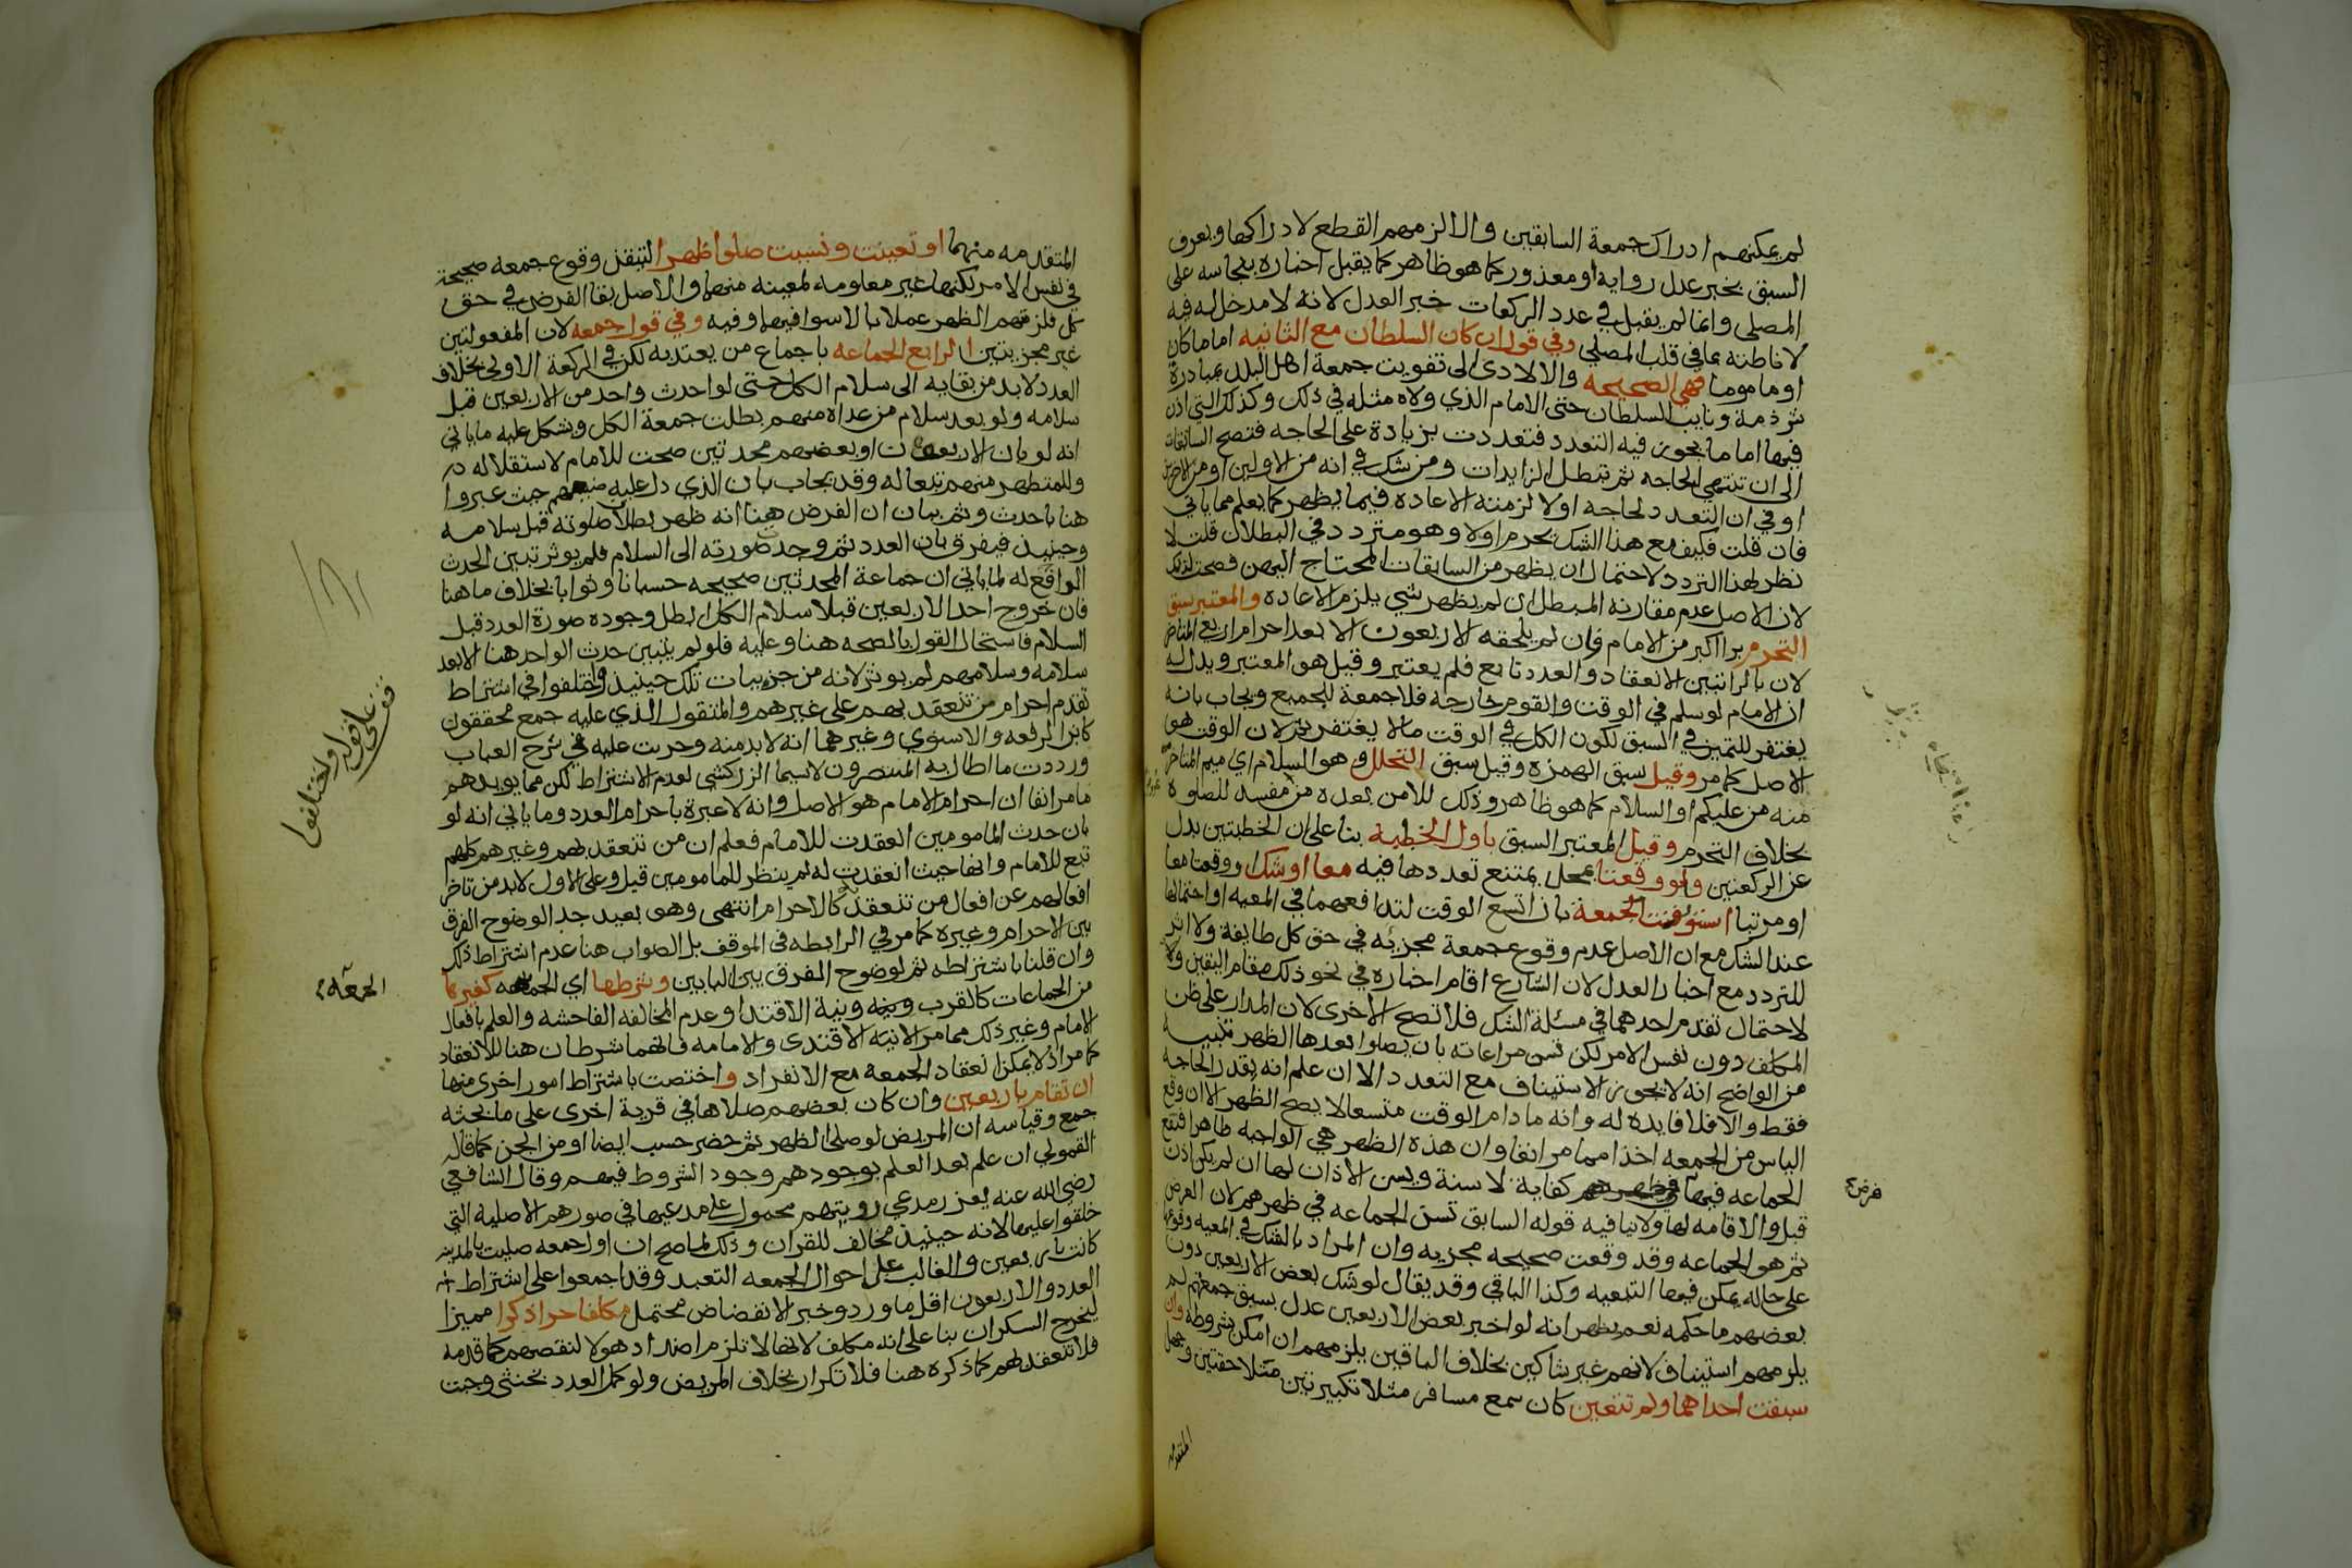 لم يمكنهم ادراك جمعة السابقين والا لزمهم القطع لادراكها ويعرف
السبق بخبر عدل رواية او معذور كما هو ظاهر كما يقبل اخباره بنجاسه على
المصلى وانما لم يقبل في عدد الركعات خبر العدل لانه لا مدخل له فيه
لاناطته بما في قلب المصلي وفي قول ان كان السلطان مع الثانيه اماما كان
او ماموما فهي الصحيحه والا لادى الى تفويت جمعة اهل البلد بمبادرة
شرذمة ونايب السلطان حتى الامام الذي ولاه مثله في ذلك وكذلك التي اذن
فيها اما ما يجوز فيه التعدد فتعددت بزيادة على الحاجه فتصح السابقات
الى ان تنتهي الحاجه ثم تبطل الزايدات ومن شك في انه من الاولين او من الاخرين
او في ان التعدد لحاجه اولا لزمته الاعاده فيما يظهر كما يعلم مما ياتي
فان قلت فكيف مع هذا الشك يحرم اولا وهو متردد في البطلان قلت لا
نظر لهذا التردد لاحتمال ان يظهر من السابقات المحتاج اليهن فصحت لذلك
لان الاصل عدم مقارنة المبطل ان لم يظهر شي يلزم الاعاده والمعتبر سبق
التحرم برا اكبر من الامام وان لم يلحقه الاربعون الا بعد احرام اربعي المتاخر
لان بالراتبين الانعقاد والعدد تابع فلم يعتبر وقيل هو المعتبر ويدل له
ان الامام لو سلم في الوقت والقوم خارجه فلا جمعة للجميع ويجاب بانه
يغتفر للتميز في السبق لكون الكل في الوقت مالا يغتفر ثم لان الوقت هو
الاصل كما مر وقيل سبق الهمزه وقيل سبق التحلل وهو السلام اي ميم المتاخر
منه من عليكم او السلام كما هو ظاهر وذلك للامن بعده من مفسد للصلوة
بخلاف التحرم وقيل المعتبر السبق باول الخطبة بنا على ان الخطبتين بدل
عن الركعتين ولو وقعتا بمحل يمتنع تعددها فيه معا او شك اوقعتا معا
او مرتبا استؤنفت الجمعة بان اتسع الوقت لتدافعهما في المعيه او احتمالها
عند الشك مع ان الاصل عدم وقوع جمعة مجزئه في حق كل طايفة ولا اثر
للتردد مع اخبار العدل لان الشارع اقام اخباره في نحو ذلك مقام اليقين ولا
لاحتمال تقدم احدهما في مسئلة الشك فلا تصح الاخرى لان المدار على ظن
المكلف دون نفس الامر لكن تسن مراعاته بان يصلوا بعدها الظهر تنبيه
من الواضح انه لا يجوز الاستيناف مع التعدد الا ان علم انه بقدر الحاجه
فقط والا فلا فايده له وانه ما دام الوقت متسعا لا يصح الظهر الا ان وقع
الياس من الجمعه اخذا مما مر انفا وان هذه الظهر هي الواجبه ظاهرا فتقع
الجماعه فيها فرض كفاية لا سنة ويسن الاذان لها ان لم يكن اذن
قبل والاقامه لها ولا ينافيه قوله السابق تسن الجماعه في ظهرهم لان الفرض
ثم هو الجماعه وقد وقعت صحيحه مجزيه وان المراد بالشك في المعيه وقوعها
على حاله يمكن فيها التبعيه وكذا الباقي وقد يقال لو شك بعض الاربعين دون
بعضهم ما حكمه نعم يظهر انه لو اخبر بعض الاربعين عدل بسبق جمعتهم لم
يلزمهم استيناف لانهم غير شاكين بخلاف الباقين يلزمهم ان امكن بشروطه وان
سبقت احداهما ولم تتعين كان سمع مسافر مثلا تكبيرتين متلاحقتين وجهل
المتقدمه
فرض
المتقدمه منهما او تعينت ونسيت صلوا ظهرا لتيقن وقوع جمعه صحيحة
في نفس الامر لكنها غير معلومه لمعينه منهما والاصل بقا الفرض في حق
كل فلزمهم الظهر عملا بالاسوا فيهما وفيه وفي قول جمعه لان المفعولتين
غير مجزيتين الرابع الجماعه باجماع من يعتد به لكن في الركعة الاولى بخلاف
العدد لابد من بقايه الى سلام الكل حتى لو احدث واحد من الاربعين قبل
سلامه ولو بعد سلام من عداه منهم بطلت جمعة الكل ويشكل عليه ما ياتي
انه لو بان الاربعون او بعضهم محدثين صحت للامام لاستقلاله
وللمتطهر منهم تبعا له وقد يجاب بان الذي دل عليه صنيعهم حيث عبروا
هنا باحدث وثم ببان ان الفرض هنا انه ظهر بطلان صلوته قبل سلامه
وحينيذ فيفرق بان العدد ثم وجد صورته الى السلام فلم يوثر تبين الحدث
الواقع له لما ياتي ان جماعة المحدثين صحيحه حسبانا وثوابا بخلاف ما هنا
فان خروج احد الاربعين قبل سلام الكل ابطل وجوده صورة العدد قبل
السلام فاستحال القول بالصحه هنا وعليه فلو لم يتبين حدث الواحد هنا الا بعد
سلامه وسلامهم لم يوثر لانه من جزييات تلك حينيذ واختلفوا في اشتراط
تقدم احرام من تنعقد بهم على غيرهم والمنقول الذي عليه جمع محققون
كابن الرفعه والاسنوي وغيرهما انه لابد منه وجريت عليه في شرح العباب
ورددت ما اطال به المنتصرون لاسيما الزركشي لعدم الاشتراط لكن مما يويدهم
ما مر انفا ان احرام الامام هو الاصل وانه لا عبرة باحرام العدد وما ياتي انه لو
بان حدث المامومين انعقدت للامام فعلم ان من تنعقد بهم وغيرهم كلهم
تبع للامام وانها حيث انعقدت له لم ينظر للمامومين قيل وعلى الاول لابد من تاخر
افعالهم عن افعال من تنعقد كالاحرام انتهى وهو بعيد جدا لوضوح الفرق
بين الاحرام وغيره كما مر في الرابطه في الموقف بل الصواب هنا عدم اشتراط ذلك
وان قلنا باشتراطه ثم لوضوح الفرق بين البابين وشرطها اي الجماعه كغيرها
من الجماعات كالقرب ونية الاقتدا وعدم المخالفه الفاحشه والعلم بافعال
الامام وغير ذلك مما مر الا نية الاقتدى والامامه فانهما شرطان هنا للانعقاد
كما مر اذ لا يمكن انعقاد الجمعه مع الانفراد واختصت باشتراط امور اخرى منها
ان تقام باربعين وان كان بعضهم صلاها في قرية اخرى على ما بحثه
جمع وقياسه ان المريض لو صلى الظهر ثم حضر حسب ايضا او من الجن كما قاله
القمولي ان علم بعد العلم بوجودهم وجود الشروط فيهم وقال الشافعي
رضي الله عنه يعزر مدعي رويتهم محمول على مدعيها في صورهم الاصلية التي
خلقوا عليها لانه حينيذ مخالف للقران وذلك لما صح ان اول جمعه صليت بالمدينه
كانت باربعين والغالب على احوال الجمعه التعبد وقد اجمعوا على اشتراط
العدد والاربعون اقل ما ورد وخبر الانفضاض محتمل مكلفا حرا ذكرا مميزا
ليخرج السكران بنا على انه مكلف لانها لا تلزم اضداد هولا لنقصهم كما قدمه
فلا تنعقد بهم كما ذكره هنا فلا تكرار بخلاف المريض ولو كمل العدد بخنثى وجبت
قف على قوله واختلفوا
الجمعه